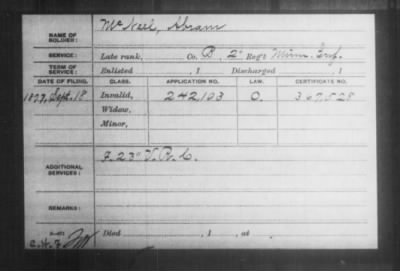 NAME OF SOLDIER: McNeel, Abram
SERVICE: Late rank, Co. B, 2" Reg't Minn. Inf.
TERM OF SERVICE: Enlisted 1 Discharged 1
DATE OF FILING. CLASS. APPLICATION NO. LAW. CERTIFICATE NO.
1877, Sept. 18 Invalid, 242,103 O. 367,528
Widow,
Minor,
ADDITIONAL SERVICES: F. 23" V.R.C.
REMARKS:
Died , 1 , at
C.H.F.